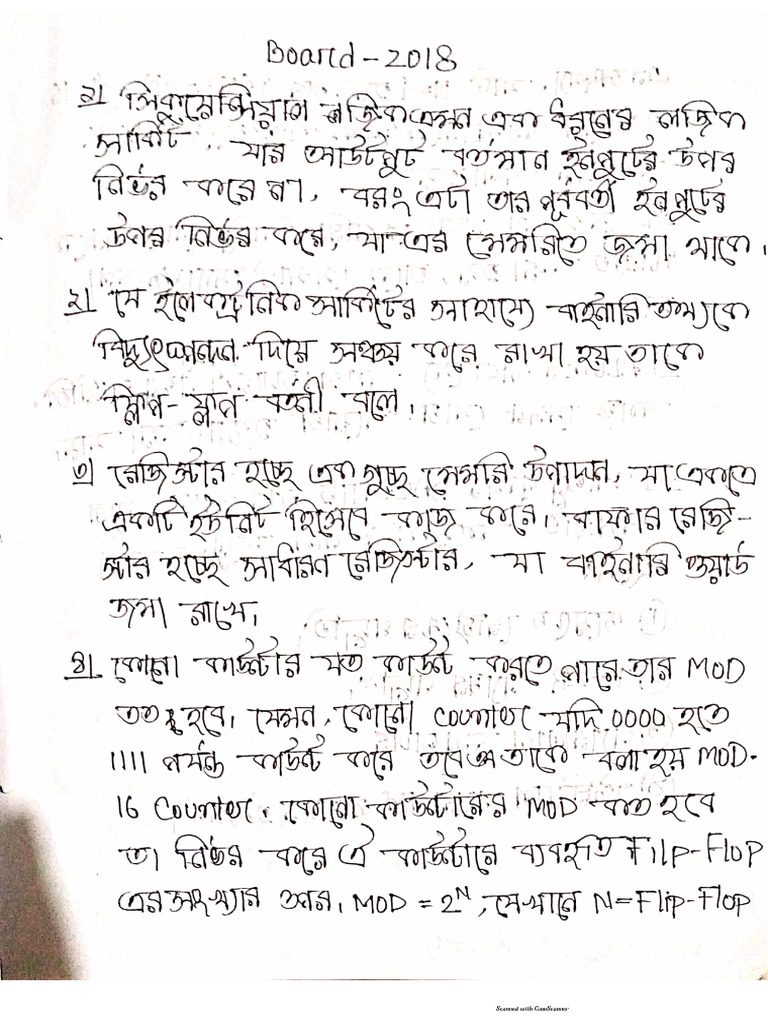 Board - 2018
১। সিকুয়েন্সিয়াল লজিক এমন এক ধরনের লজিক
সার্কিট যার আউটপুট বর্তমান ইনপুটের উপর
নির্ভর করে না, বরং এটা তার পূর্ববর্তী ইনপুটের
উপর নির্ভর করে, যা এর মেমরিতে জমা থাকে।
২। যে ইলেকট্রনিক সার্কিটের সাহায্যে বাইনারি তথ্যকে
বিদ্যুৎস্পন্দন দিয়ে সঞ্চয় করে রাখা হয় তাকে
ফ্লিপ-ফ্লপ বর্তনী বলে।
৩। রেজিস্টার হচ্ছে এক গুচ্ছ মেমরি উপাদান, যা একত্রে
একটি ইউনিট হিসেবে কাজ করে। বাফার রেজি-
স্টার হচ্ছে সাধারন রেজিস্টার, যা বাইনারি ওয়ার্ড
জমা রাখে।
৪। কোনো কাউন্টার যত কাউন্ট করতে পারে তার MOD
তত হবে। যেমন, কোনো Counter যদি 0000 হতে
1111 পর্যন্ত কাউন্ট করে তবে তাকে বলা হয় MOD-
16 Counter. কোনো কাউন্টারের MOD কত হবে
তা নির্ভর করে ঐ কাউন্টারে ব্যবহৃত Filp-Flop
এর সংখ্যার ওপর। MOD = 2^N, যেখানে N=Flip-Flop
Scanned with CamScanner